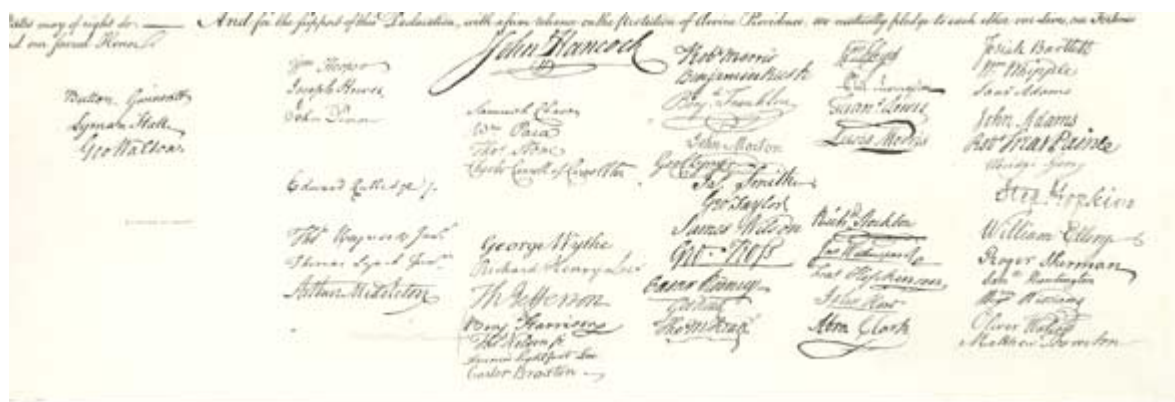 And for the support of this Declaration, with a firm reliance on the protection of divine Providence, we mutually pledge to each other our Lives, our Fortunes
and our sacred Honor.
Button Gwinnett
Lyman Hall
Geo Walton
Wm Hooper
Joseph Hewes
John Penn
Edward Rutledge
Thos Heyward Junr
Thomas Lynch Junr
Arthur Middleton
John Hancock
Samuel Chase
Wm Paca
Thos Stone
Charles Carroll of Carrollton
George Wythe
Richard Henry Lee
Th Jefferson
Benj Harrison
Thos Nelson jr
Francis Lightfoot Lee
Carter Braxton
Robt Morris
Benjamin Rush
Benj Franklin
John Morton
Geo Clymer
Jas Smith
Geo Taylor
James Wilson
Geo Ross
Caesar Rodney
Geo Read
Tho M:Kean
Wm Floyd
Phil Livingston
Frans Lewis
Lewis Morris
Richd Stockton
Jno Witherspoon
Fras Hopkinson
John Hart
Abra Clark
Josiah Bartlett
Wm Whipple
Saml Adams
John Adams
Robt Treat Paine
Elbridge Gerry
Step Hopkins
William Ellery
Roger Sherman
Saml Huntington
Wm Williams
Oliver Wolcott
Matthew Thornton